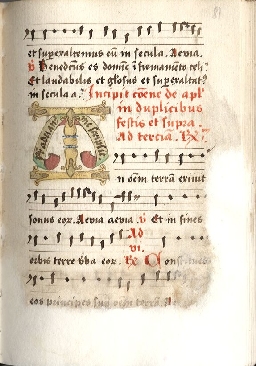 et superaltemus eū in secula. Aevia.
V Benedictus es domine ī firmamēto celi
Et laudabilis et glosus et superaltat9
in secula a. Incipit cōene de apl'
in duplicibus
festis et supra.
Ad terciā. Bx.
In oēm terrā exivit
sonus eor. Aevia aevia. V Et in fines
Ad
vi.
orbis terre v̄ba eor. Bx Constitues
eos principes sup oem terrā. Ae